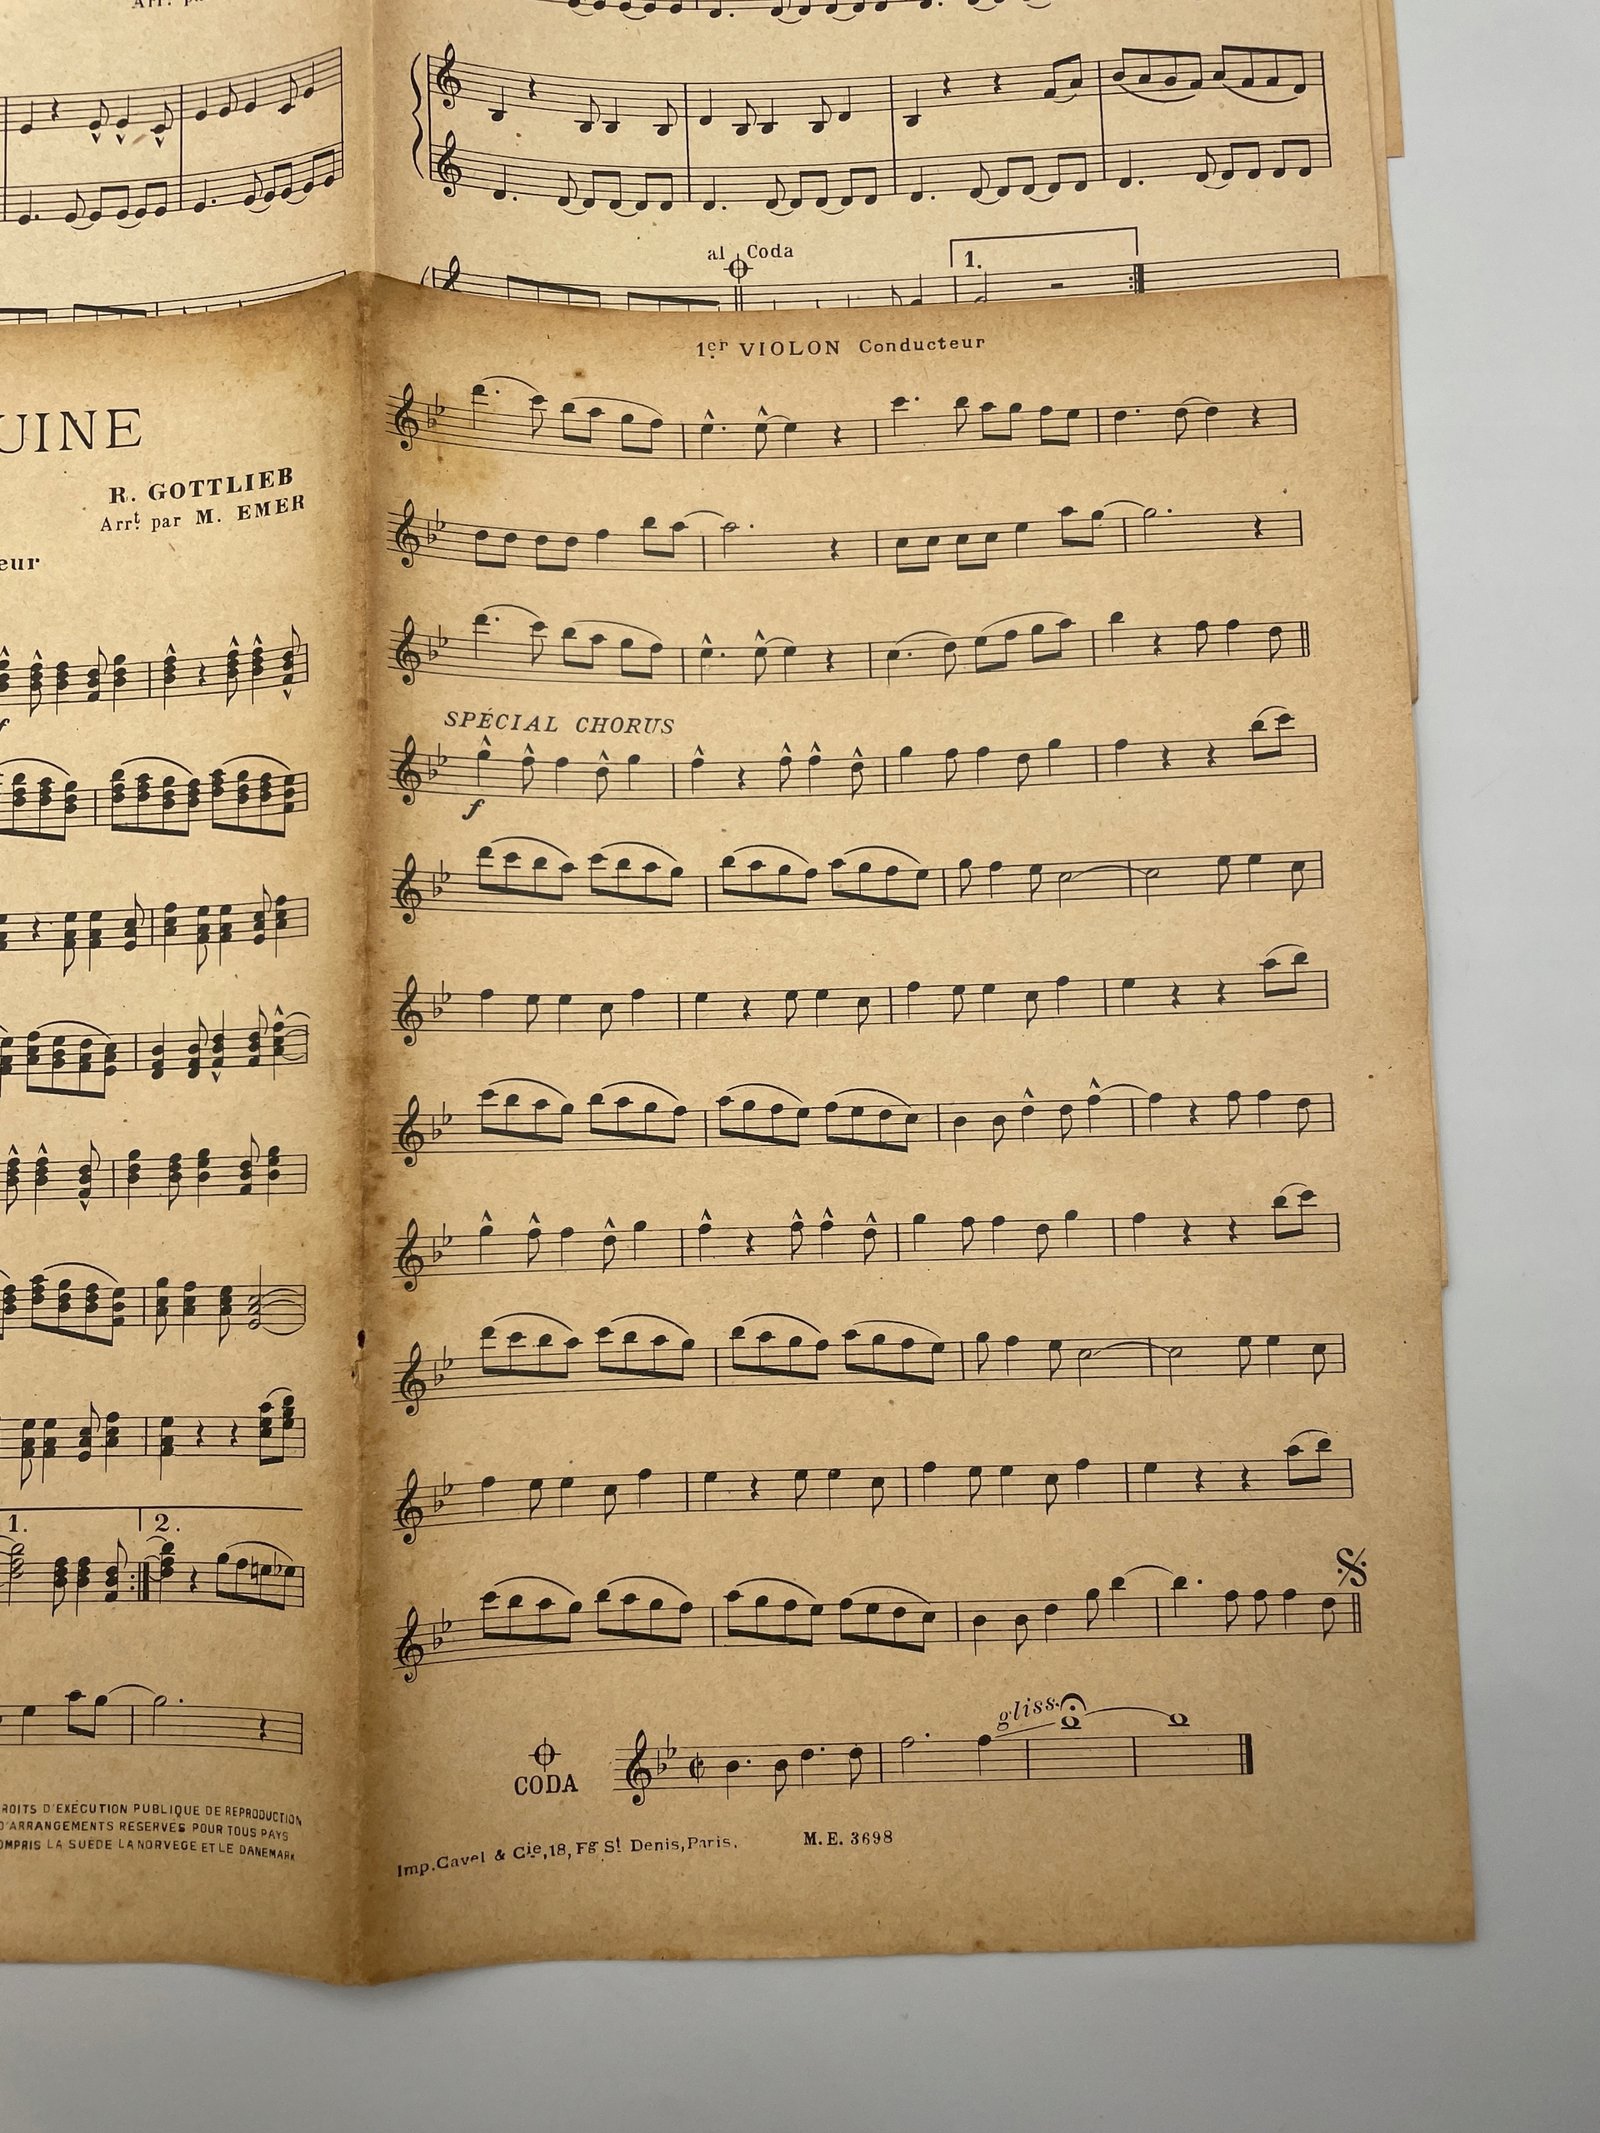 al Coda
1.
1er VIOLON Conducteur
UINE
R. GOTTLIEB
Arrt par M. EMER
eur
SPÉCIAL CHORUS
f
f
1.
2.
gliss.
CODA
ROITS D'EXÉCUTION PUBLIQUE DE REPRODUCTION
D'ARRANGEMENTS RESERVES POUR TOUS PAYS
OMPRIS LA SUÈDE LA NORVEGE ET LE DANEMARK
Imp. Cavel & Cie, 18, Fg St Denis, Paris.
M. E. 3698